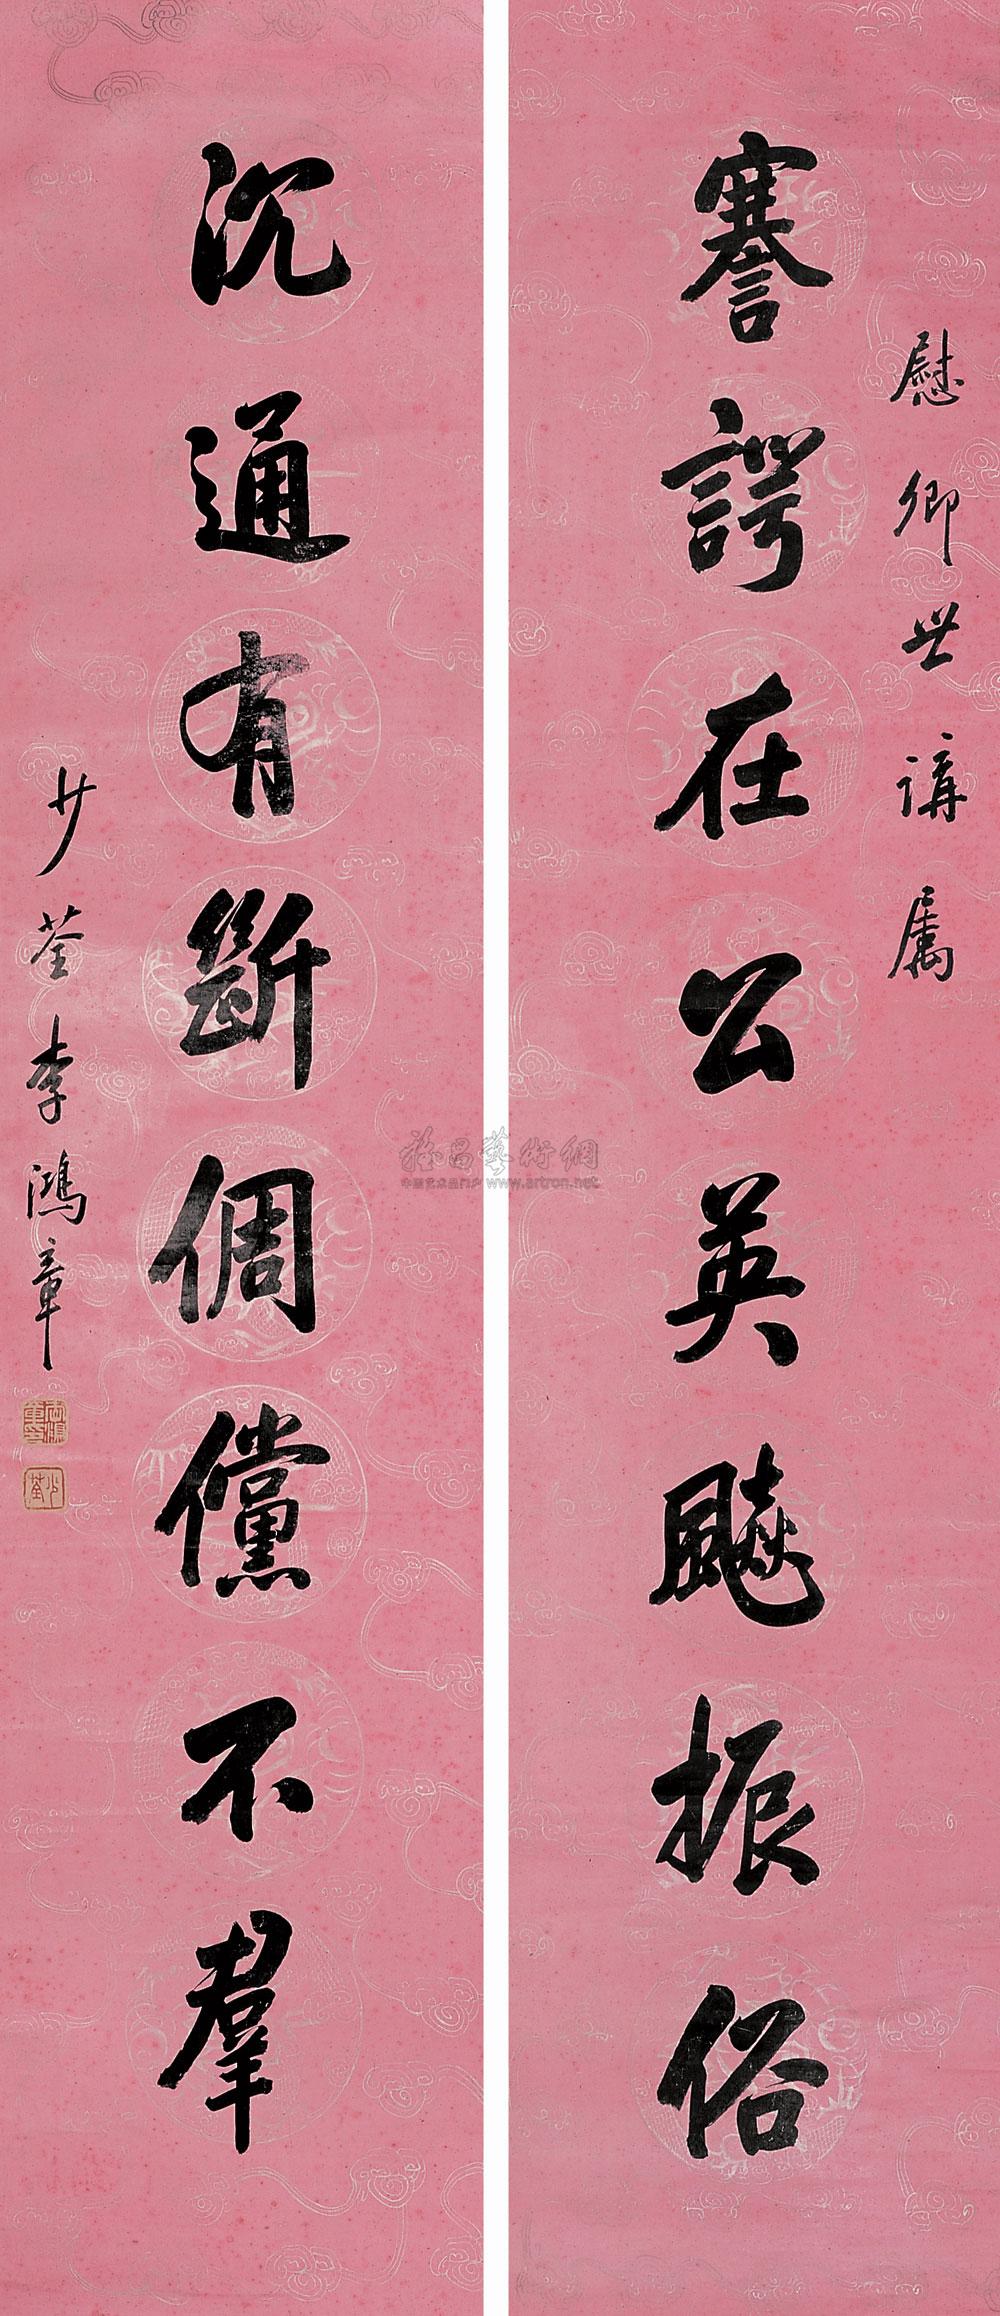 慰卿世講屬
謇諤在公英飈振俗
沉通有斷倜儻不羣
少荃李鴻章
少荃
雅昌藝術網
中国艺术品门户 www.artron.net